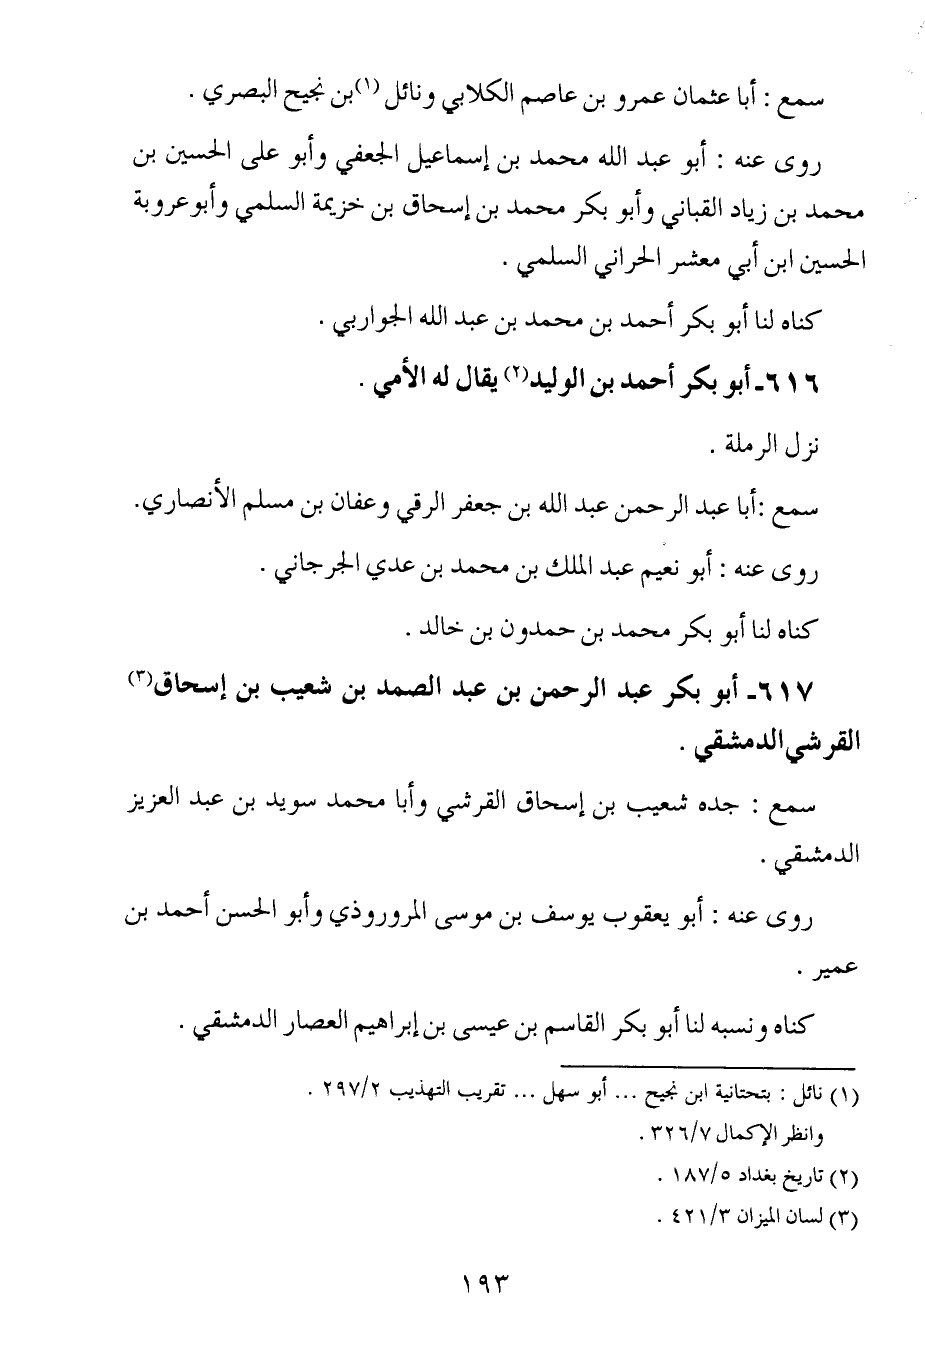 سمع : أبا عثمان عمرو بن عاصم الكلابي ونائل (١) بن نجيح البصري .
روى عنه : أبو عبد الله محمد بن إسماعيل الجعفي وأبو على الحسين بن
محمد بن زياد القباني وأبو بكر محمد بن إسحاق بن خزيمة السلمي وأبو عروبة
الحسين ابن أبي معشر الحراني السلمي .
كناه لنا أبو بكر أحمد بن محمد بن عبد الله الجواربي .
٦١٦ـ أبو بكر أحمد بن الوليد(٢) يقال له الأمي .
نزل الرملة .
سمع :أبا عبد الرحمن عبد الله بن جعفر الرقي وعفان بن مسلم الأنصاري.
روى عنه : أبو نعيم عبد الملك بن محمد بن عدي الجرجاني .
كناه لنا أبو بكر محمد بن حمدون بن خالد .
٦١٧ـ أبو بكر عبد الرحمن بن عبد الصمد بن شعيب بن إسحاق(٣)
القرشي الدمشقي .
سمع : جده شعيب بن إسحاق القرشي وأبا محمد سويد بن عبد العزيز
الدمشقي .
روى عنه : أبو يعقوب يوسف بن موسى المروروذي وأبو الحسن أحمد بن
عمير .
كناه ونسبه لنا أبو بكر القاسم بن عيسى بن إبراهيم العصار الدمشقي .
(١) نائل : بتحتانية ابن نجيح ... أبو سهل ... تقريب التهذيب ٢٩٧/٢ .
وانظر الإكمال ٣٢٦/٧ .
(٢) تاريخ بغداد ١٨٧/٥ .
(٣) لسان الميزان ٤٢١/٣ .
١٩٣